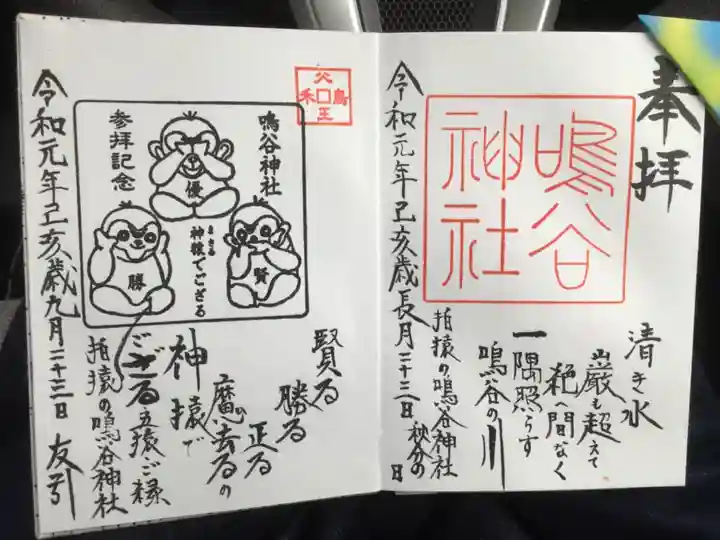 奉拝
鳴谷
神社
清き水
巌も超えて
絶間なく
一隅照らす
鳴谷の川
拍猿の鳴谷神社
秋分の日
令和元年己亥歳長月二十三日
鳴谷神社
参拝記念
優
勝
賢
神猿でござる
まさる
賢る
勝る
正る
魔が去るの
神猿で
ござる
立猿ご縁
拍猿の鳴谷神社
令和元年己亥歳九月二十三日 友引